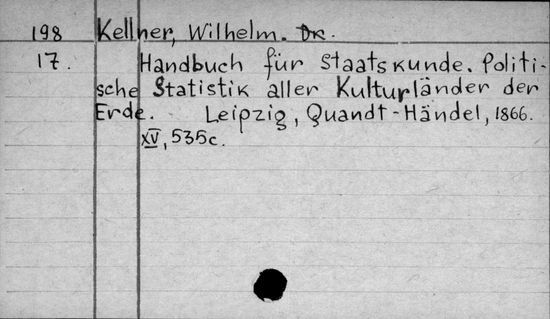 198 Kellner, Wilhelm. Dr.
17. Handbuch für Staatskunde. Politi-
sche Statistik aller Kulturländer der
Erde. Leipzig, Quandt-Händel, 1866.
XV, 535c.